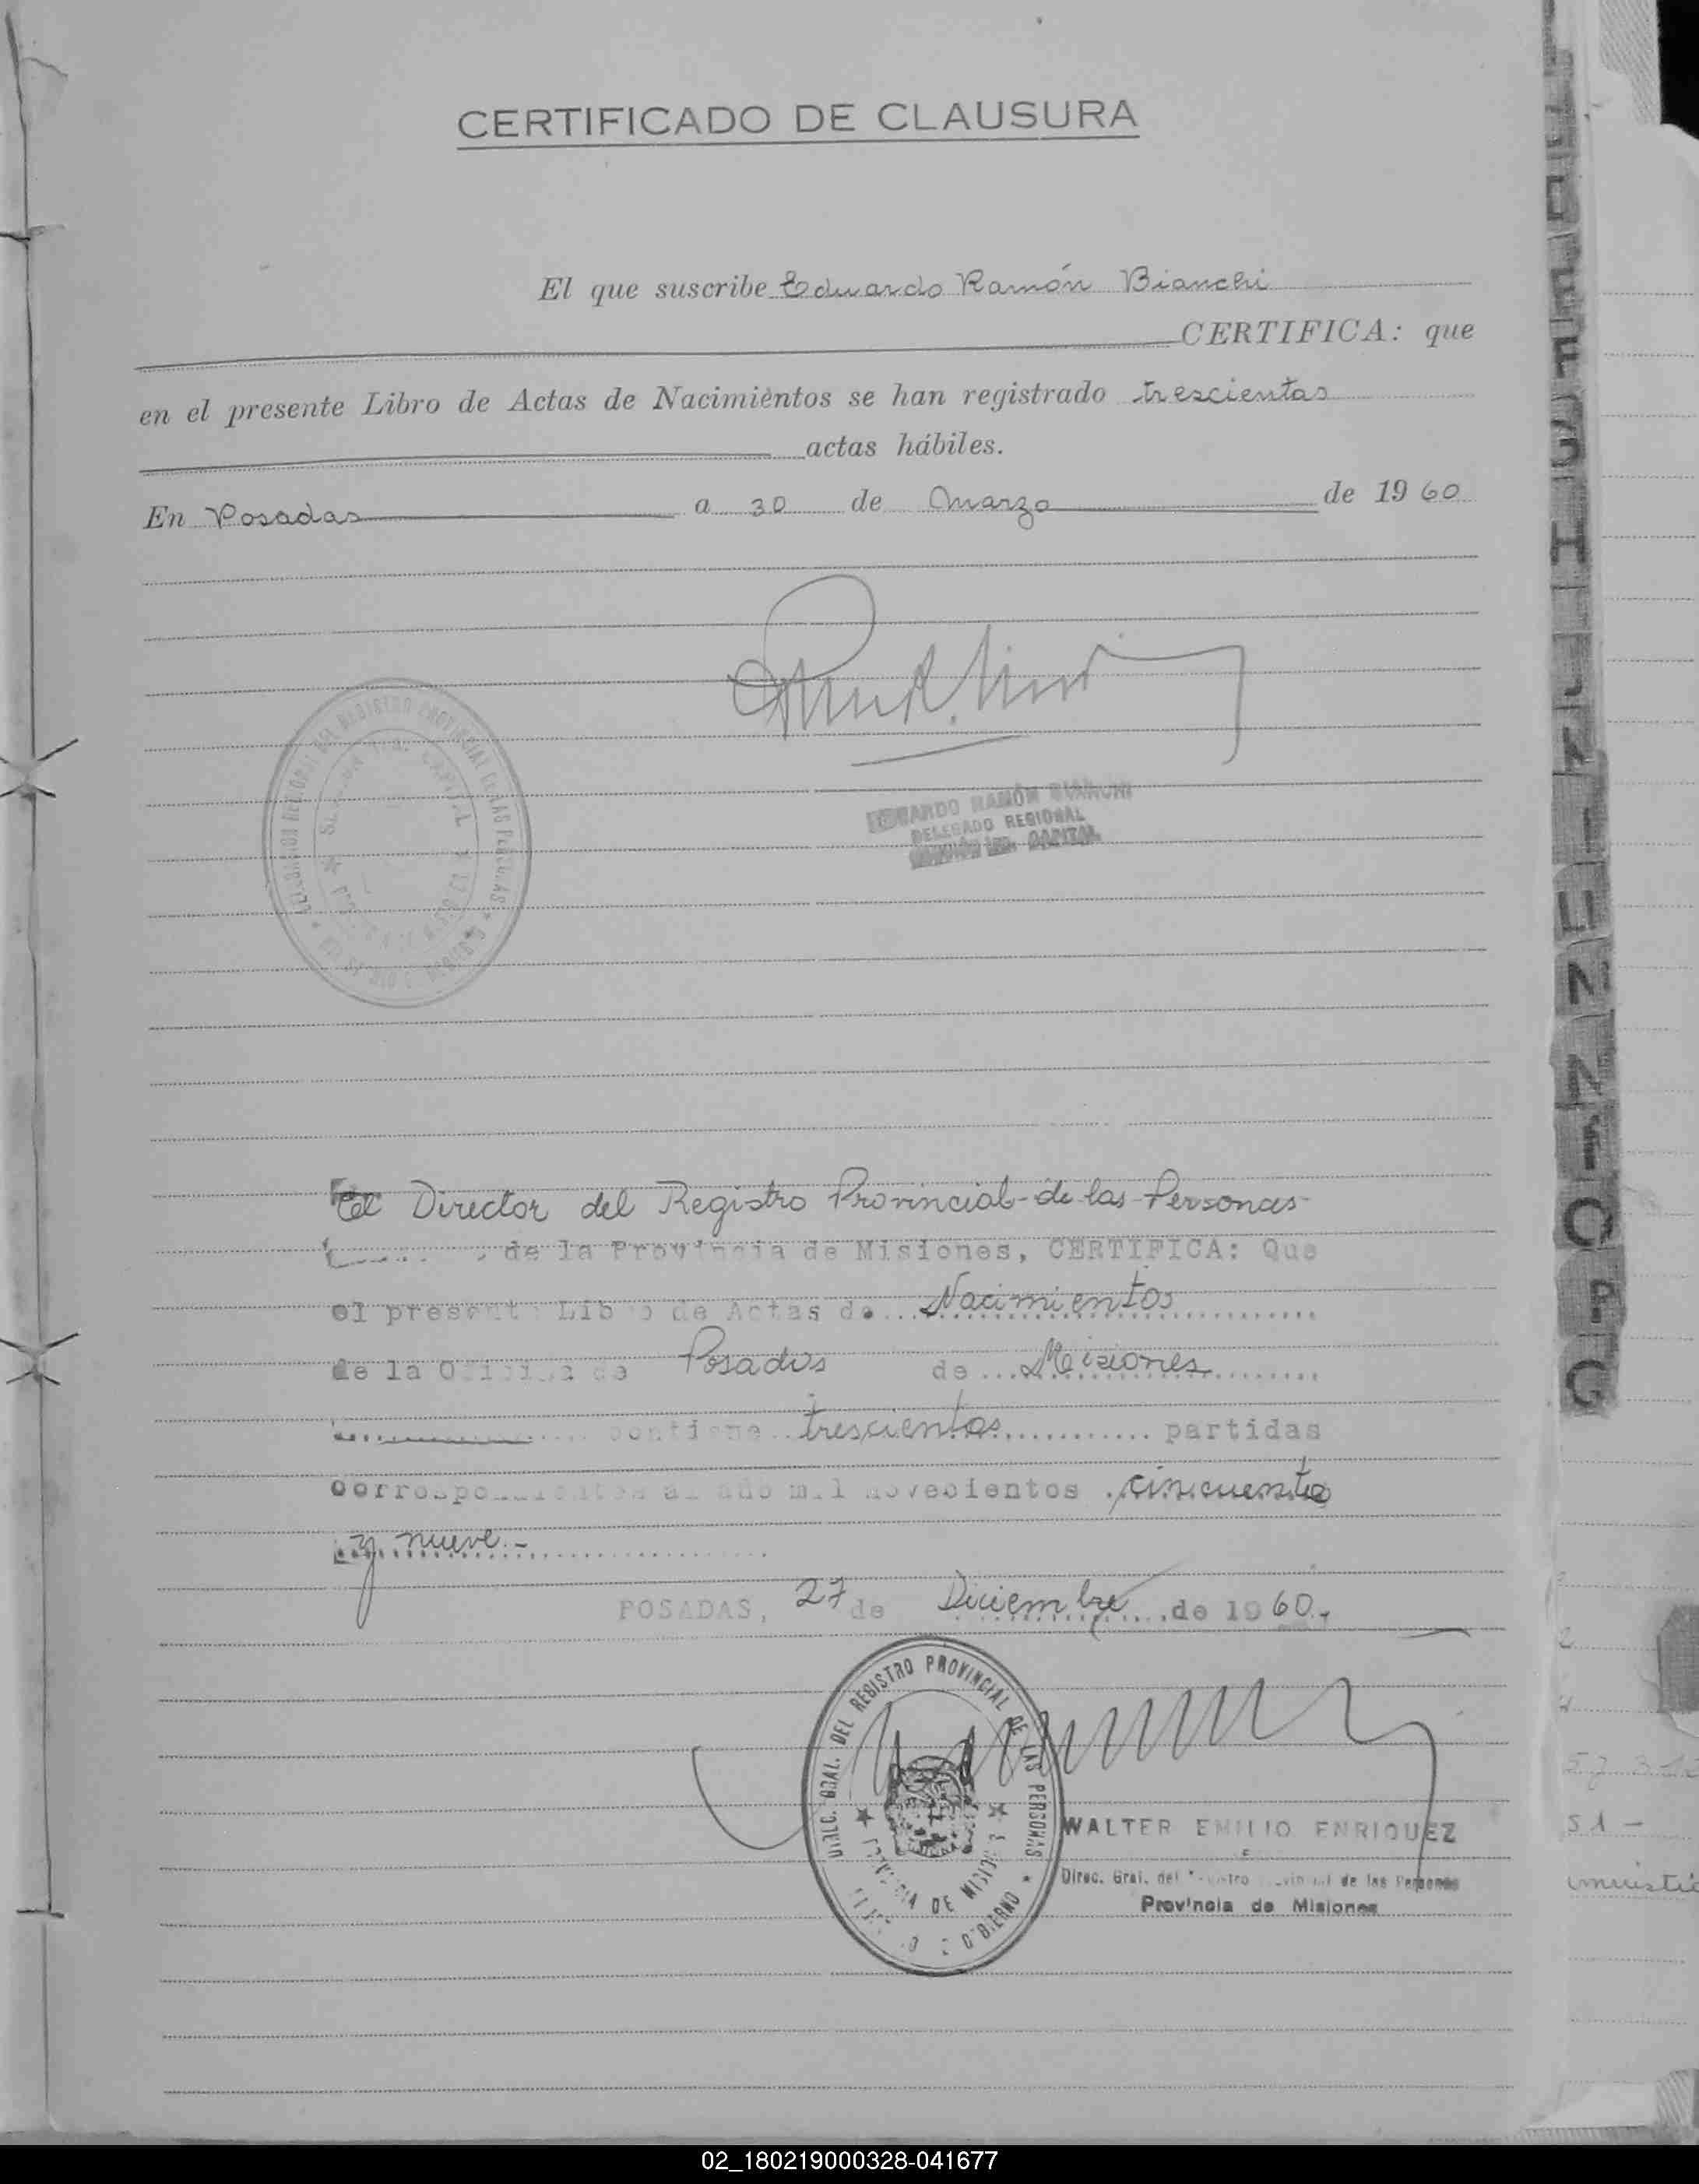 CERTIFICADO DE CLAUSURA
El que suscribe Eduardo Ramón Bianchi
CERTIFICA: que
en el presente Libro de Actas de Nacimientos se han registrado trescientas
actas hábiles.
En Posadas a 30 de Marzo de 1960
EDUARDO RAMÓN BIANCHI
DELEGADO REGIONAL
CAPITAL
El Director del Registro Provincial de las Personas
de la Provincia de Misiones, CERTIFICA: Que
el presente Libro de Actas de Nacimientos
de la Oficina de Posadas de Misiones
contiene trescientas partidas
correspondientes al año mil novecientos cincuenta
y nueve.-
POSADAS, 27 de Diciembre de 1960.-
DIREC. GRAL. DEL REGISTRO PROVINCIAL DE LAS PERSONAS
PROVINCIA DE MISIONES
WALTER EMILIO ENRIQUEZ
Direc. Gral. del Registro Provincial de las Personas
Provincia de Misiones
A B C D E F G H I J K L M N Ñ O P Q
02_180219000328-041677